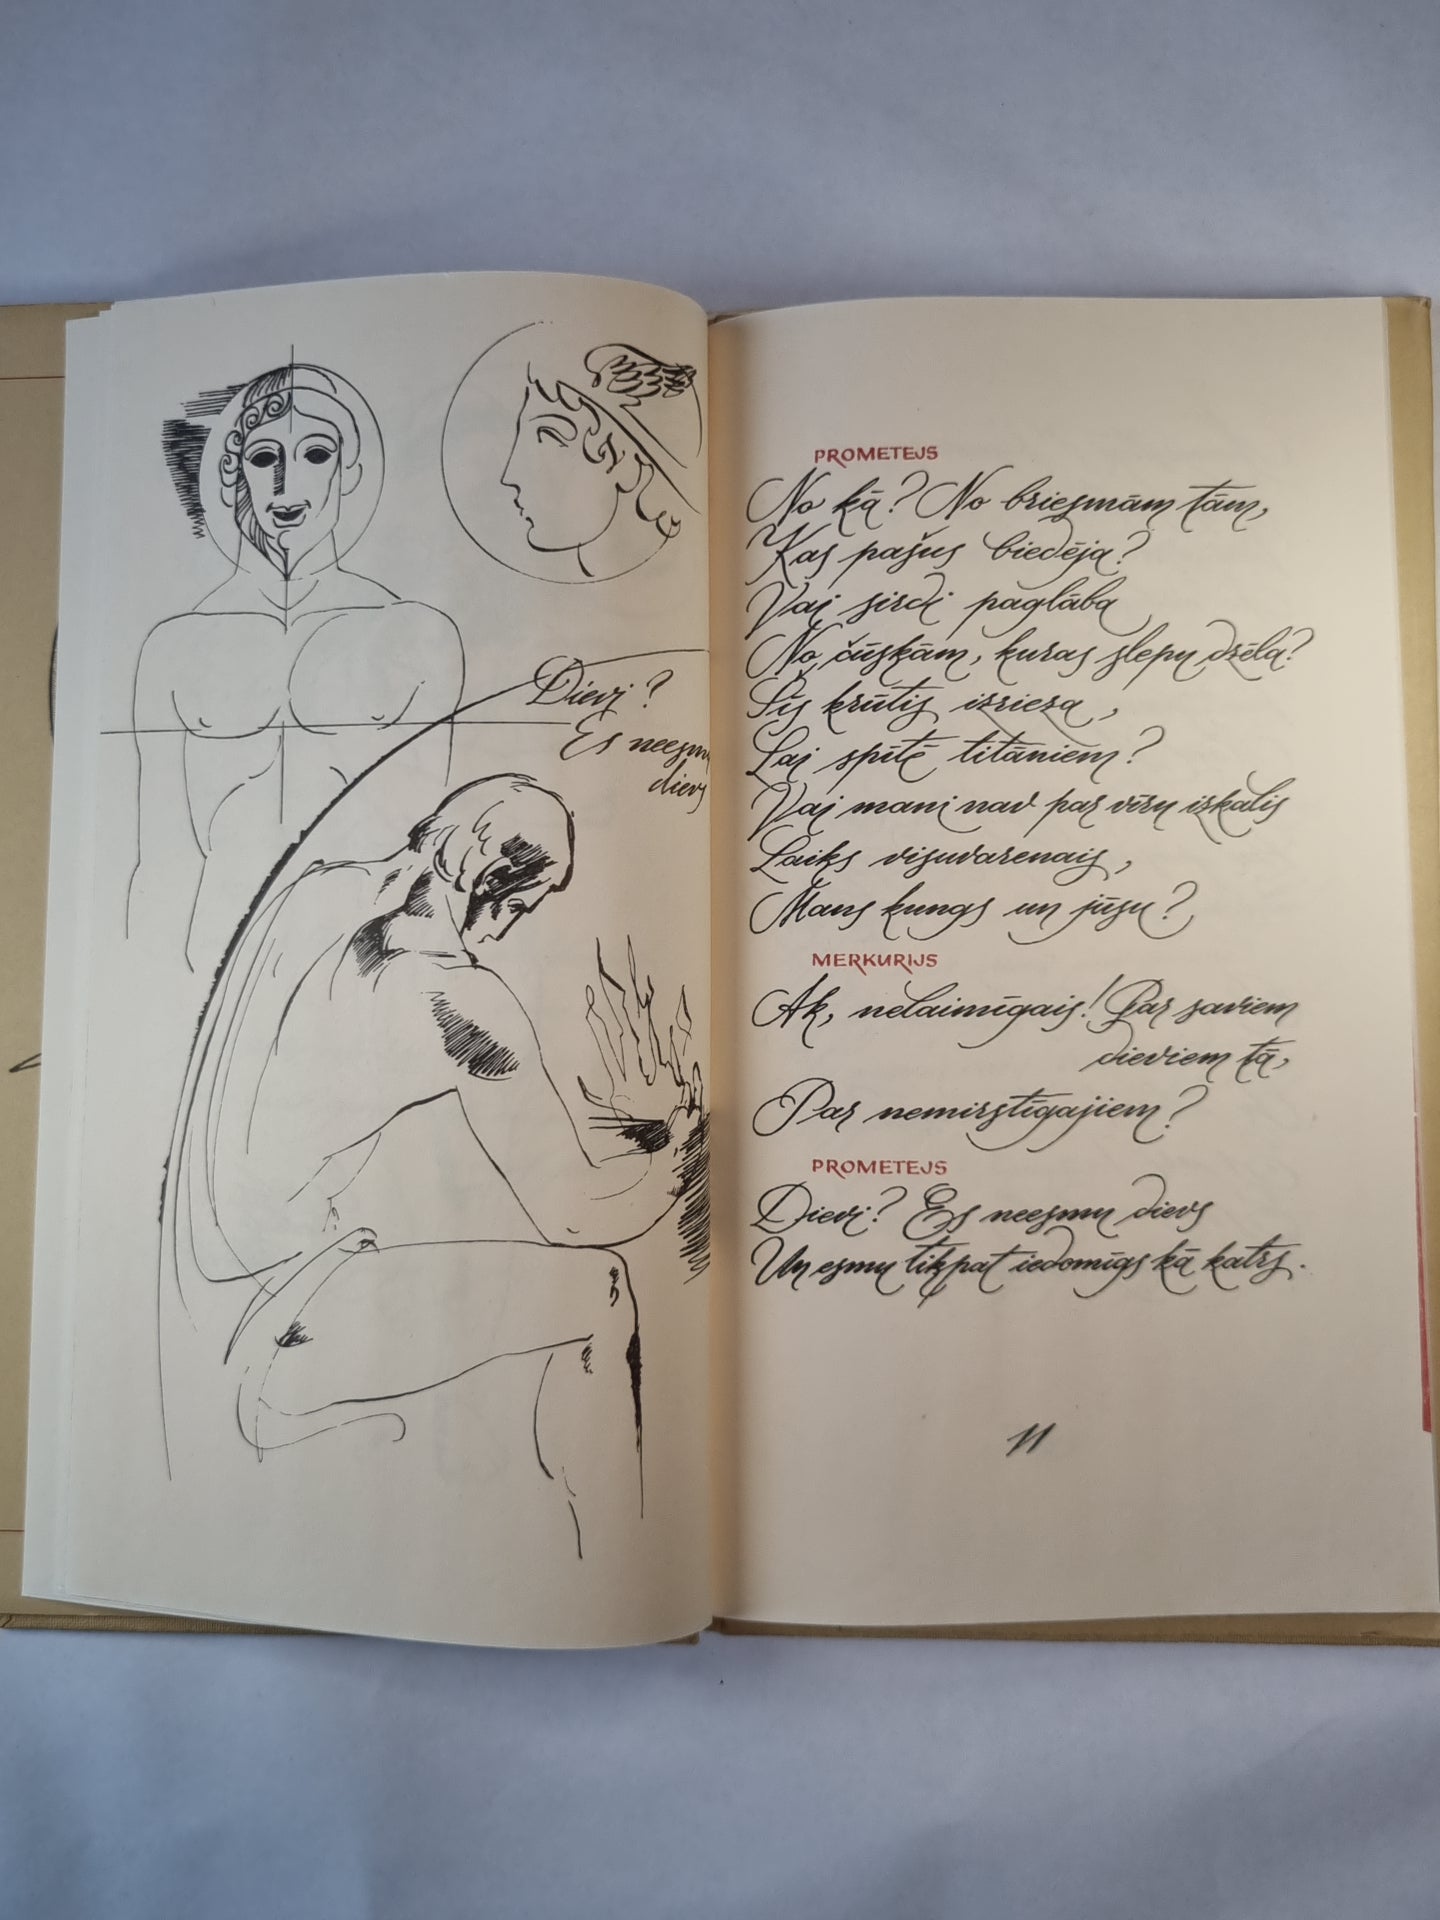 Dievi?
Es neesmu
dievs
PROMETEJS
No kā? No briesmām tām,
Kas pašus biedēja?
Vai sirdi paglāba
No čūskām, kuras slepu dzēla?
Šīs krūtis izrieza,
Lai spītē titāniem?
Vai mani nav par vīru izkalis
Laiks visuvarenais,
Mans kungs un jūsu?
MERKURIJS
Ak, nelaimīgais! Par saviem
dieviem tā,
Par nemirstīgajiem?
PROMETEJS
Dievi? Es neesmu dievs
Un esmu tikpat iedomīgs kā katrs.
11